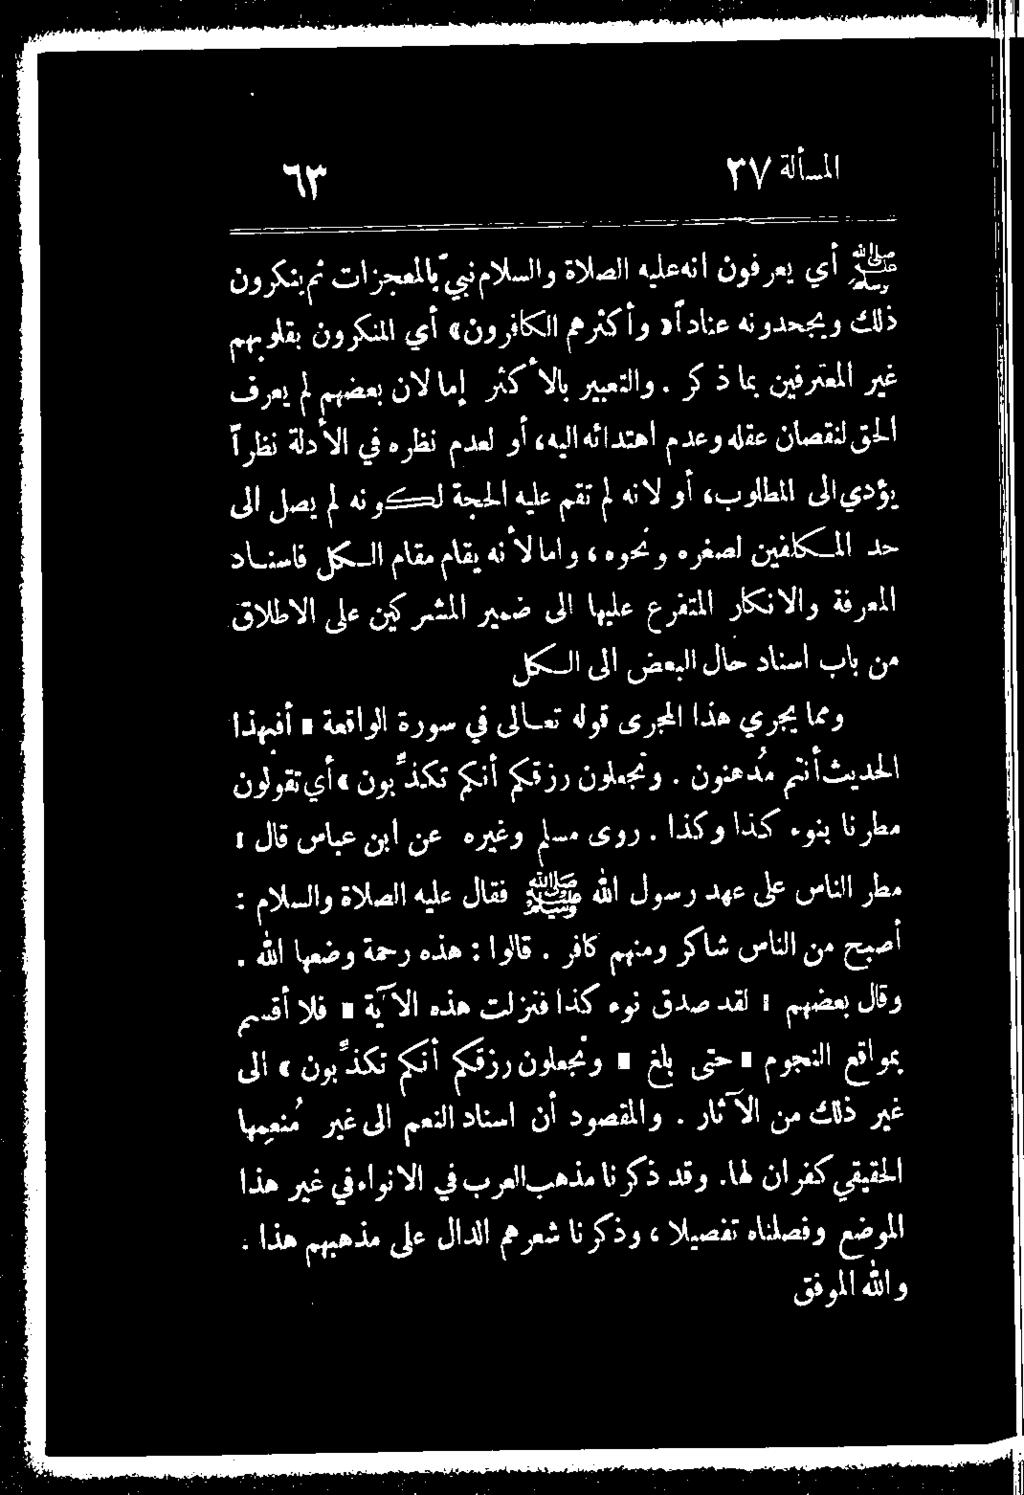 المسألة ٣٧ ٦٣
ﷺ أي يعرفون انه عليه الصلاة والسلام نبيّ بالمعجزات ثم ينكرون
ذلك ويجحدونه عناداً « وأكثرهم الكافرون » أي المنكرون بقلوبهم
غير المعترفين بما ذكر . والتعبير بالأكثر إما لان بعضهم لم يعرف
الحق لنقصان عقله وعدم اهتدائه اليه ، أو لعدم نظره في الأدلة نظراً
يؤدي الى المطلوب ، أو لانه لم تقم عليه الحجة لكونه لم يصل الى
حد المكلفين لصغره ونحوه ، واما لأنه يقام مقام الكل فاسناد
المعرفة والانكار المتفرع عليها الى ضمير المشركين على الاطلاق
من باب اسناد حال البعض الى الكل
ومما يجري هذا المجرى قوله تعالى في سورة الواقعة « أفبهذا
الحديث أنتم مُدهنون . وتجعلون رزقكم أنكم تكذّبون » أي تقولون
مطرنا بنوء كذا وكذا . روى مسلم وغيره عن ابن عباس قال :
مطر الناس على عهد رسول الله ﷺ فقال عليه الصلاة والسلام :
أصبح من الناس شاكر ومنهم كافر . قالوا : هذه رحمة وضعها الله .
وقال بعضهم : لقد صدق نوء كذا فنزلت هذه الآية « فلا أقسم
بمواقع النجوم » حتى بلغ « وتجعلون رزقكم أنكم تكذّبون » الى
غير ذلك من الآثار . والمقصود أن اسناد النعم الى غير مُنعمِها
الحقيقي كفران لها . وقد ذكرنا مذهب العرب في الانواء في غير هذا
الموضع وفصلناه تفصيلا ، وذكرنا شعرهم الدال على مذهبهم هذا .
والله الموفق